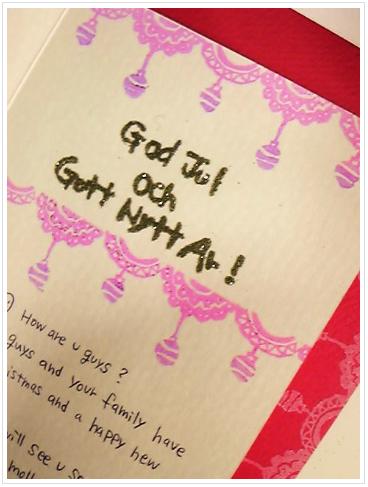 God Jul
och
Gott Nytt År!
How are u guys?
guys and your family have
istmas and a happy new
will see u